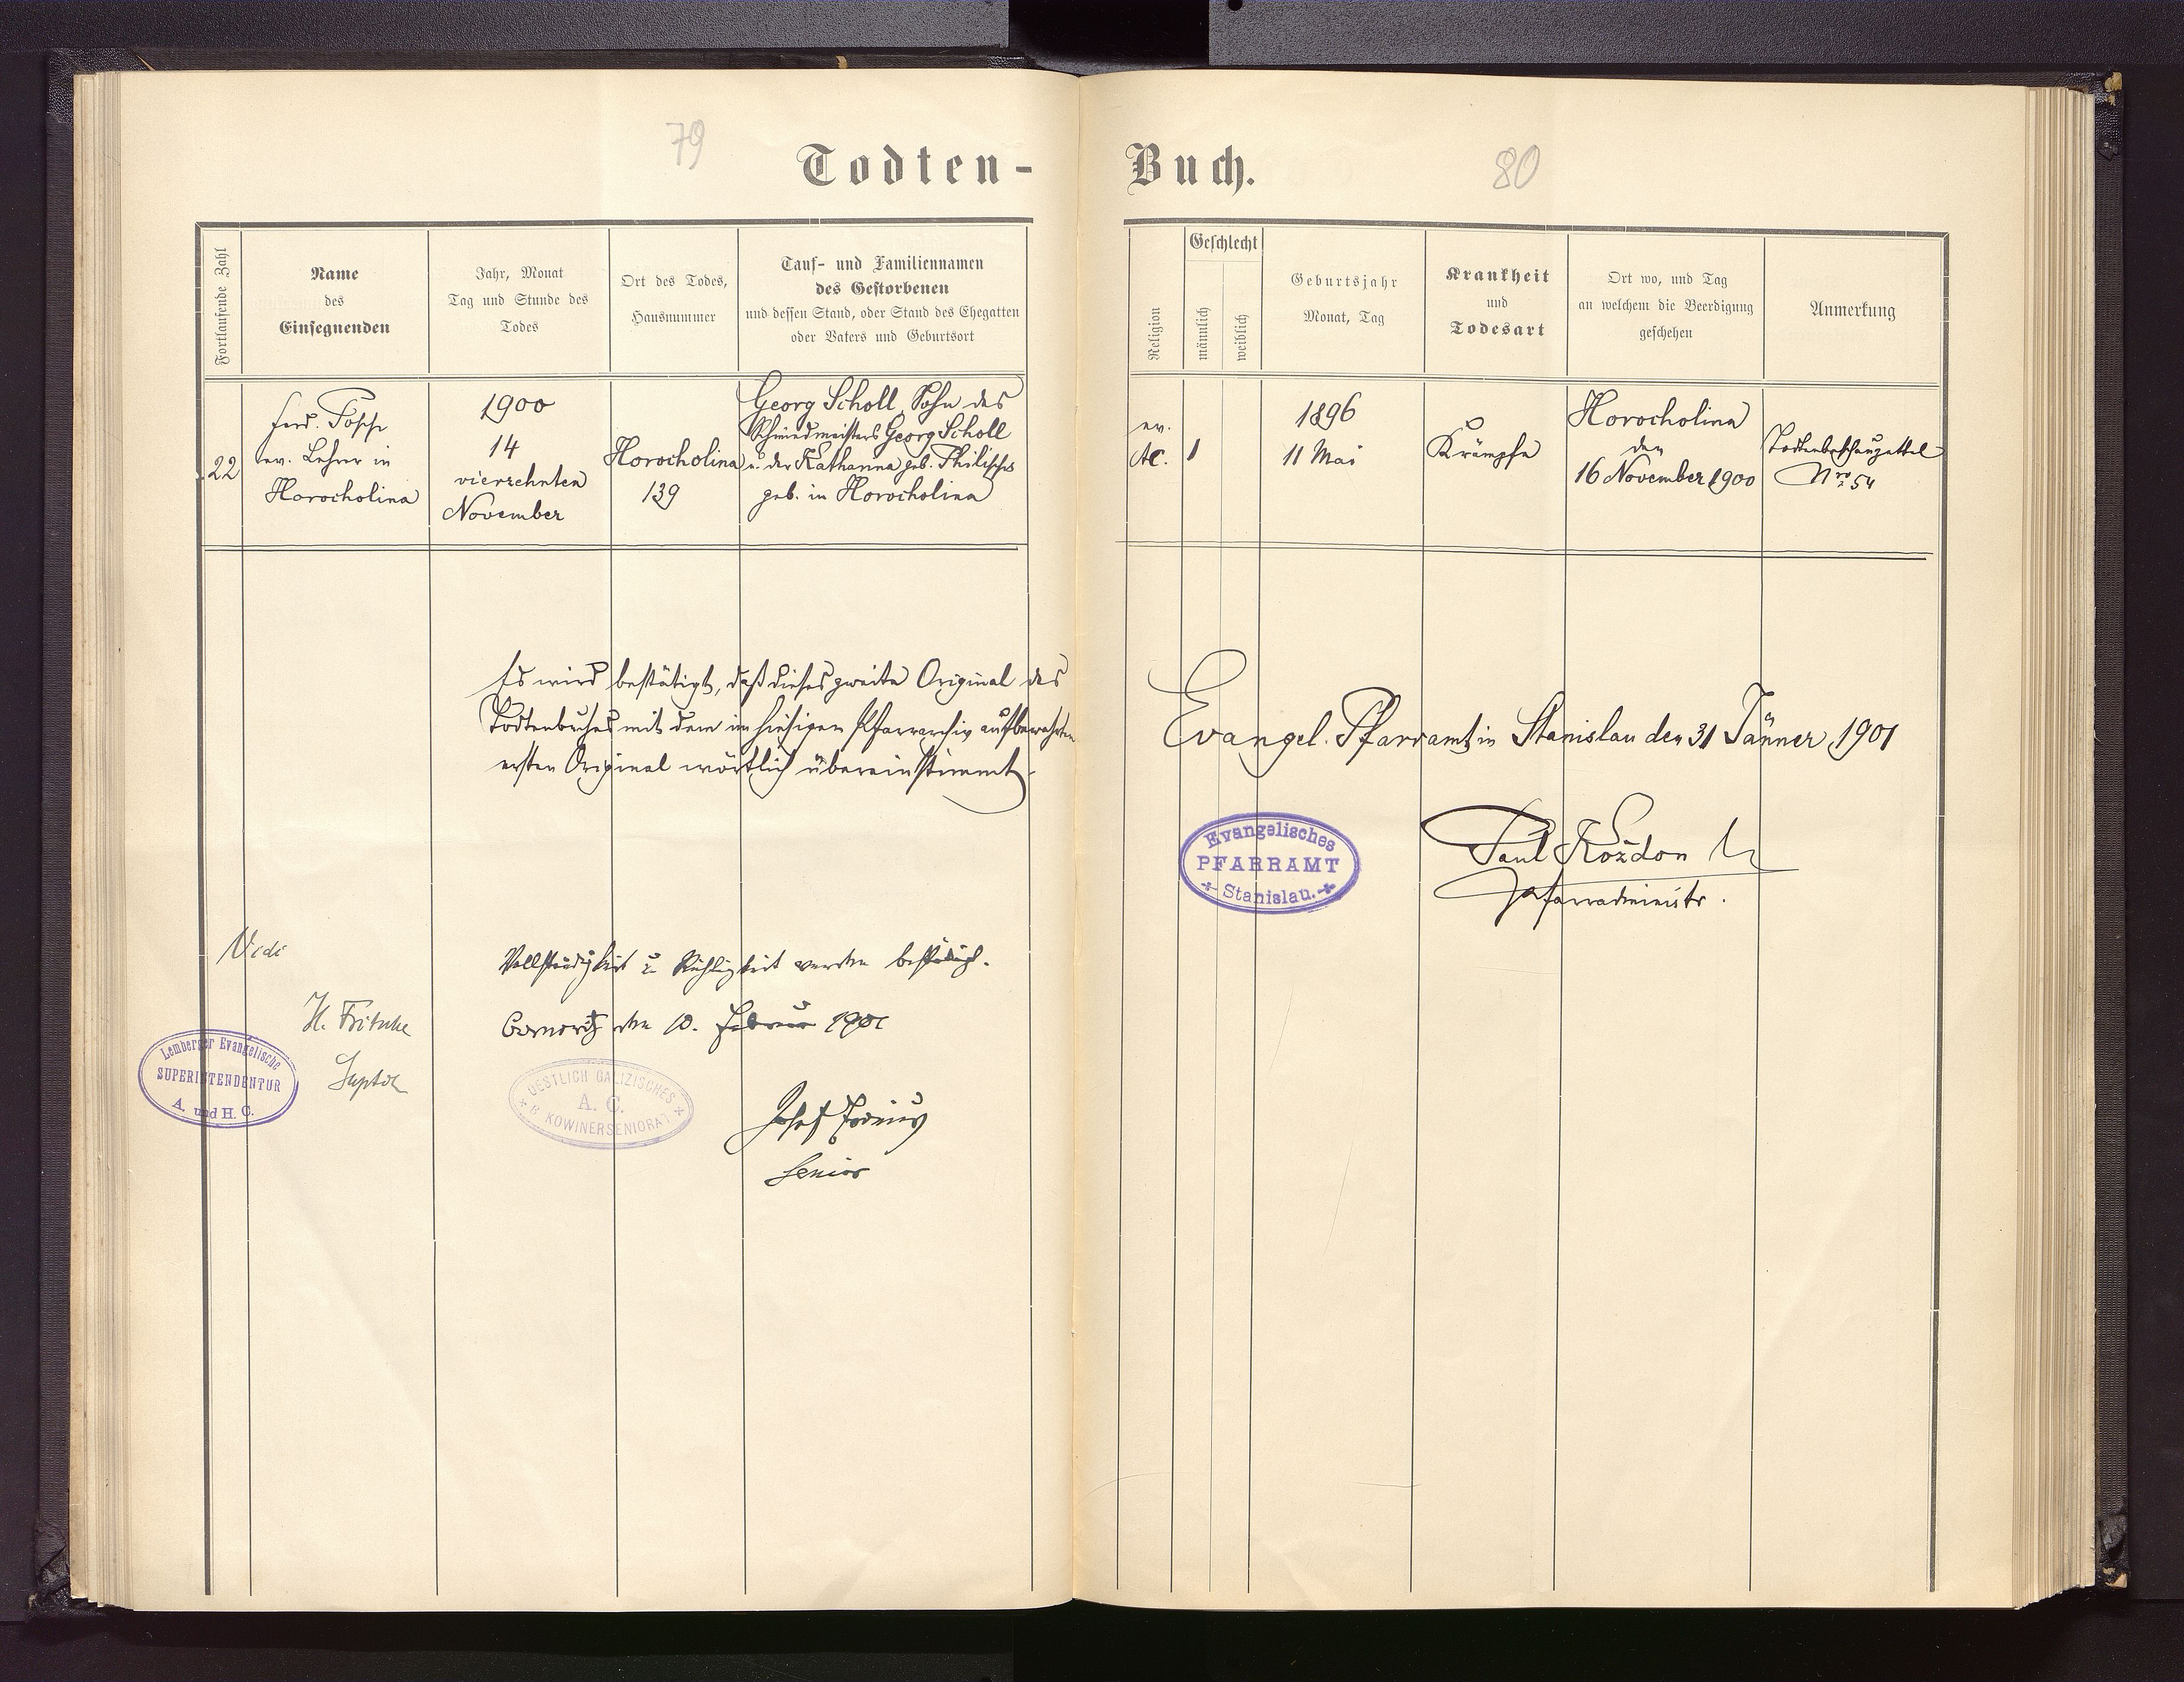 79
Todten-
Buch.
80
Fortlaufende Zahl
Name
des
Einsegnenden
Jahr, Monat
Tag und Stunde des
Todes
Ort des Todes,
Hausnummer
Tauf- und Familiennamen
des Gestorbenen
und dessen Stand, oder Stand des Ehegatten
oder Vaters und Geburtsort
Religion
Geschlecht
männlich
weiblich
Geburtsjahr
Monat, Tag
Krankheit
und
Todesart
Ort wo, und Tag
an welchem die Beerdigung
geschehen
Anmerkung
22
Ferd.
ev. Lehrer in
Horocholina
1900
14
vierzehnten
November
Horocholina
139
Georg Scholl, Sohn des
Schmiedmeisters Georg Scholl
u. der Kathanna geb.
geb. in Horocholina
ev.
AC.
1
1896
11 Mai
Krämpfe
Horocholina
den
16 November 1900
Todtenbeschauzettel
Nro 54
Es wird bestätigt, daß dieses zweite Original des
Todtenbuches mit dem im hiesigen Pfarrarchiv aufbewahrten
ersten Original wörtlich übereinstimmt.
Evangel. Pfarramt in Stanislau den 31 Jänner 1901
Evangelisches
PFARRAMT
Stanislau.
Paul Kozdon
Pfarradministr.
Vidi
H. Fritsche
Suptdt
Lemberger Evangelische
SUPERINTENDENTUR
A. und H. C.
Vollständigkeit u. Richtigkeit werden bestätigt.
den 10. Februar 1901
OESTLICH GALIZISCHES
A. C.
BUKOWINERSENIORAT
Josef
Senior